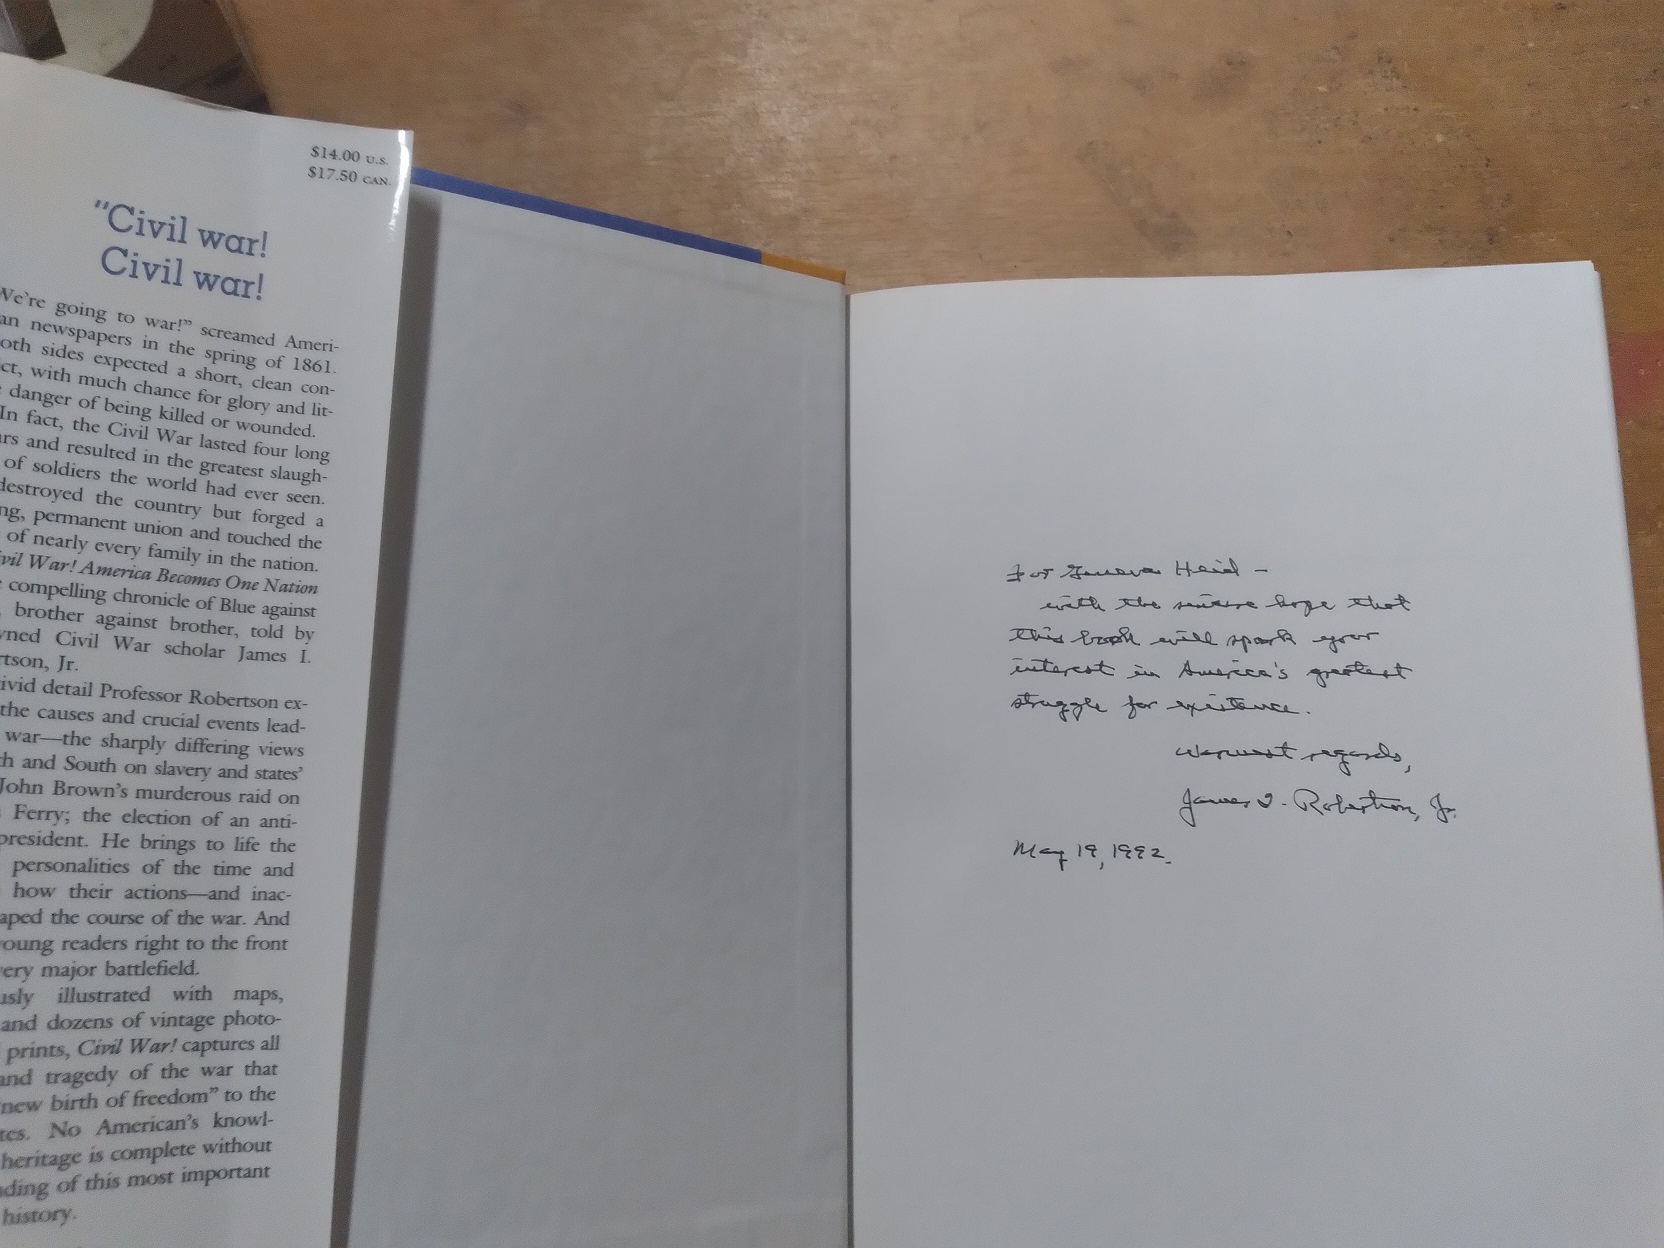 $14.00 U.S.
$17.50 CAN.
"Civil war!
Civil war!
We're going to war!" screamed Ameri-
an newspapers in the spring of 1861.
oth sides expected a short, clean con-
ct, with much chance for glory and lit-
danger of being killed or wounded.
In fact, the Civil War lasted four long
ars and resulted in the greatest slaugh-
of soldiers the world had ever seen.
destroyed the country but forged a
ng, permanent union and touched the
of nearly every family in the nation.
ivil War! America Becomes One Nation
compelling chronicle of Blue against
, brother against brother, told by
wned Civil War scholar James I.
rtson, Jr.
ivid detail Professor Robertson ex-
the causes and crucial events lead-
war—the sharply differing views
th and South on slavery and states'
John Brown's murderous raid on
s Ferry; the election of an anti-
president. He brings to life the
personalities of the time and
how their actions—and inac-
aped the course of the war. And
young readers right to the front
very major battlefield.
usly illustrated with maps,
and dozens of vintage photo-
prints, Civil War! captures all
and tragedy of the war that
new birth of freedom" to the
tes. No American's knowl-
heritage is complete without
nding of this most important
history.
For Geneva Heid –
with the sincere hope that
this book will spark your
interest in America's greatest
struggle for existence.
Warmest regards,
James I. Robertson, Jr.
May 19, 1992.